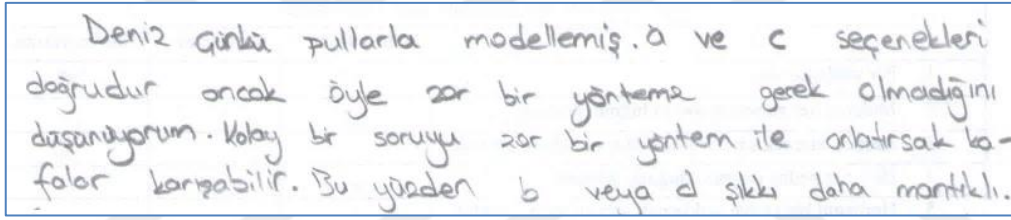 Deniz çünkü pullarla modellemiş. a ve c seçenekleri
doğrudur ancak öyle zor bir yönteme gerek olmadığını
düşünüyorum. Kolay bir soruyu zor bir yöntem ile anlatırsak ka-
falar karışabilir. Bu yüzden b veya d şıkkı daha mantıklı.